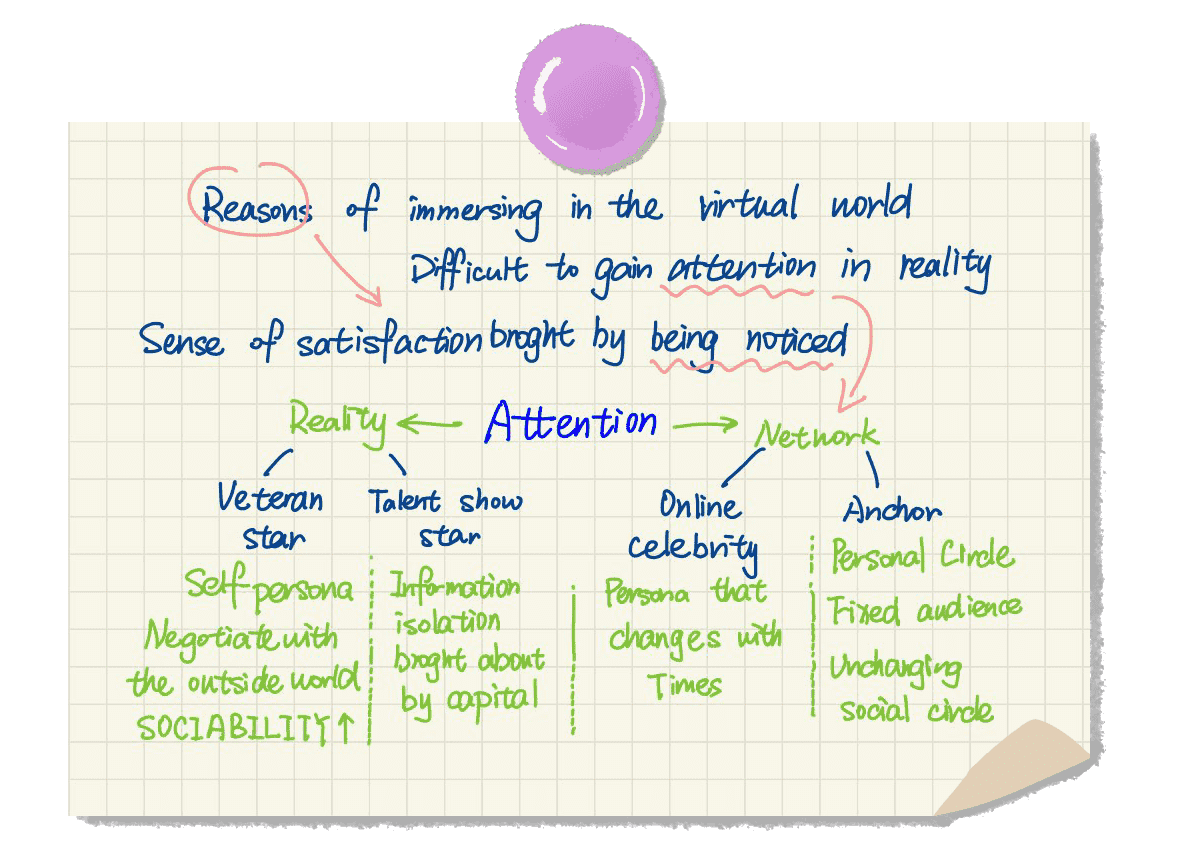 Reasons of immersing in the virtual world
Difficult to gain attention in reality
Sense of satisfaction broght by being noticed
Reality ← Attention → Network
Veteran star
Talent show star
Online celebrity
Anchor
Self-persona
Negotiate with
the outside world
SOCIABILITY↑
Information
isolation
broght about
by capital
Persona that
changes with
Times
Personal Circle
Fixed audience
Unchanging
social circle